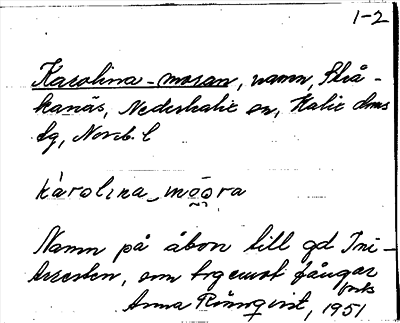 1-2
Karolina-moran, namn, Strå-
kanäs, Nederkalix sn, Kalix dms
lg, Norrb. l
kàrolina_mōōra
Namn på åbon till gd Ini-
som tog emot fångar
forts
Anna Rönnqvist, 1951